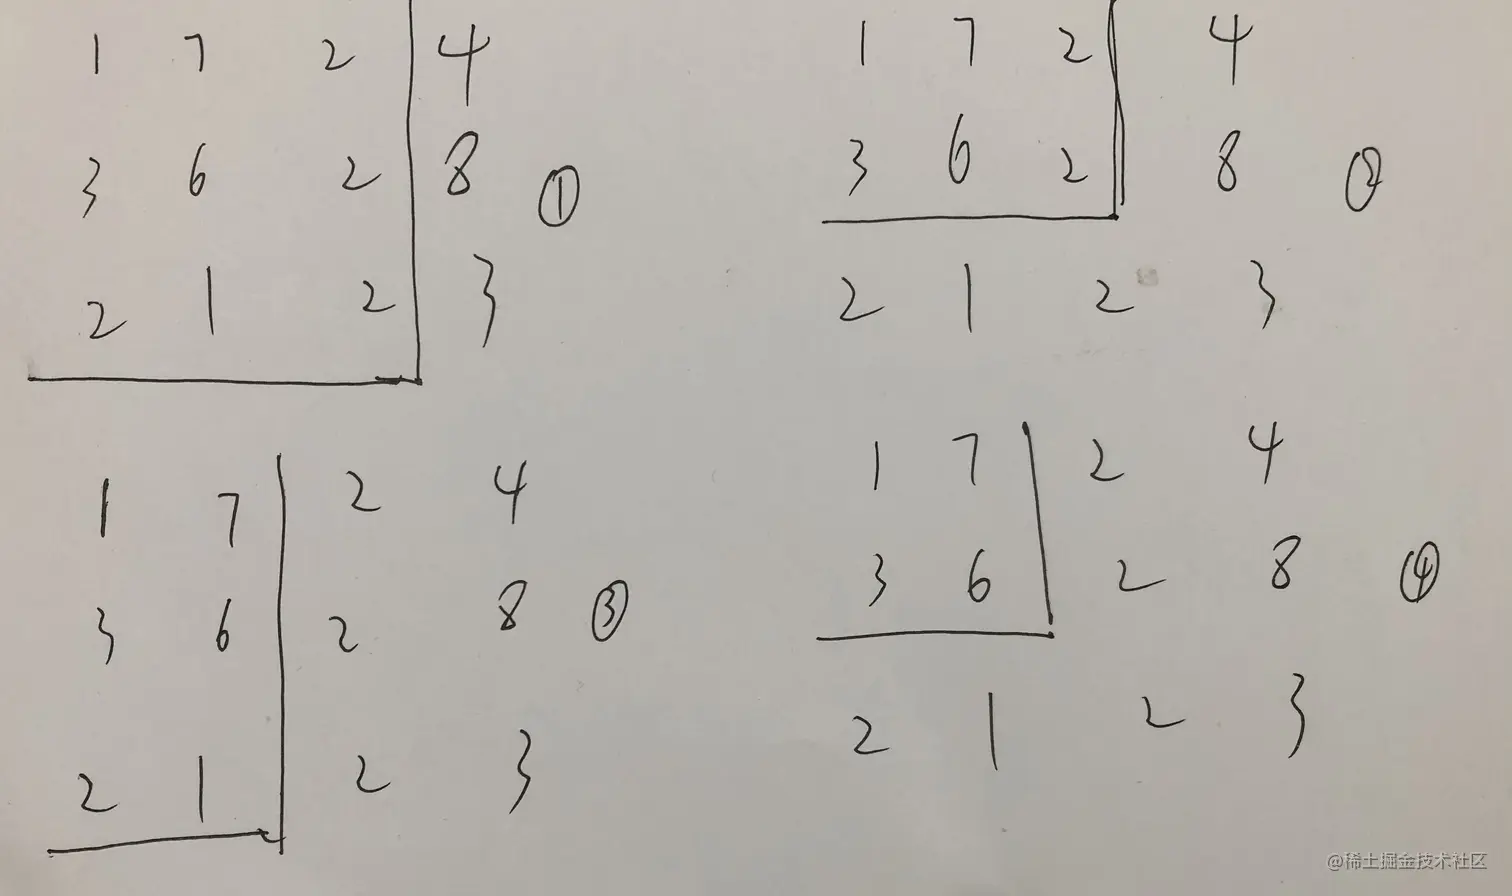 1 7 2 4
3 6 2 8 ①
2 1 2 3
1 7 2 4
3 6 2 8 ②
2 1 2 3
1 7 2 4
3 6 2 8 ③
2 1 2 3
1 7 2 4
3 6 2 8 ④
2 1 2 3
@稀土掘金技术社区